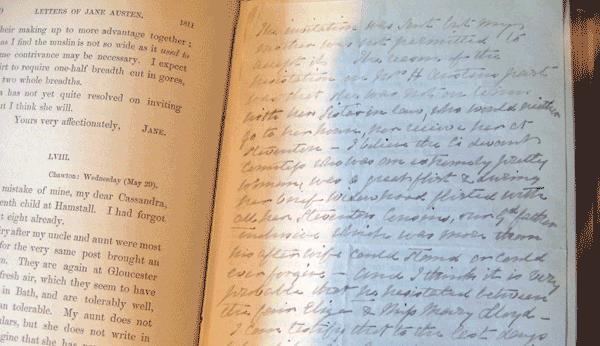 LETTERS OF JANE AUSTEN. 1811
heir making up to more advantage together ;
as I find the muslin is not so wide as it used to
me contrivance may be necessary. I expect
irt to require one-half breadth cut in gores,
two whole breadths.
a has not yet quite resolved on inviting
ut I think she will.
Yours very affectionately, JANE.
LVIII.
Chawton: Wednesday (May 29).
mistake of mine, my dear Cassandra,
enth child at Hamstall. I had forgot
t eight already.
iry after my uncle and aunt were most
for the very same post brought an
m. They are again at Gloucester
fresh air, which they seem to have
in Bath, and are tolerably well,
an tolerable. My aunt does not
lars, but she does not write in
gine that she has
The invitation was sent but my
mother was not permitted to
accept it - The reason of the
hesitation on Mrs H Austens part
was that she was not on terms
with her Sister in law, who would neither
go to her house, nor receive her at
Steventon - I believe the
who was an extremely pretty
woman, was a great flirt & during
her brief widowhood flirted with
all her Steventon Cousins, our Gd father
inclusive which was more than
his after wife could stand or could
ever forgive - And I think it is very
probable that he hesitated between
the fair Eliza & Miss Mary Lloyd -
I can testify that to the last days